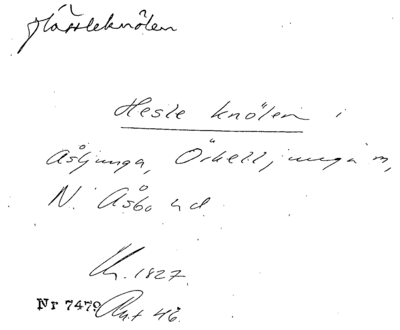 Hässleknölen
Hesle knölen i
Åsljunga, Örkelljunga sn,
N. Åsbo hd.
Kr. 1827.
Nr 7479 Akt 46.